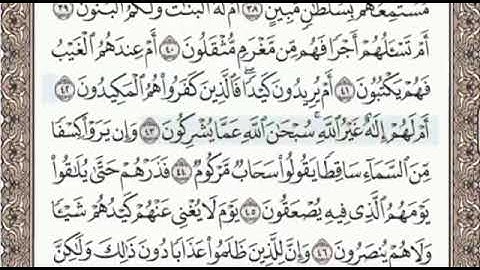 مُسْتَمِعُهُم بِسُلْطَٰنٍ مُّبِينٍ ٣٨ أَمْ لَهُ ٱلْبَنَٰتُ وَلَكُمُ ٱلْبَنُونَ ٣٩
أَمْ تَسْـَٔلُهُمْ أَجْرًا فَهُم مِّن مَّغْرَمٍ مُّثْقَلُونَ ٤٠ أَمْ عِندَهُمُ ٱلْغَيْبُ
فَهُمْ يَكْتُبُونَ ٤١ أَمْ يُرِيدُونَ كَيْدًا ۖ فَٱلَّذِينَ كَفَرُوا۟ هُمُ ٱلْمَكِيدُونَ ٤٢
أَمْ لَهُمْ إِلَٰهٌ غَيْرُ ٱللَّهِ ۚ سُبْحَٰنَ ٱللَّهِ عَمَّا يُشْرِكُونَ ٤٣ وَإِن يَرَوْا۟ كِسْفًا
مِّنَ ٱلسَّمَآءِ سَاقِطًا يَقُولُوا۟ سَحَابٌ مَّرْكُومٌ ٤٤ فَذَرْهُمْ حَتَّىٰ يُلَٰقُوا۟
يَوْمَهُمُ ٱلَّذِى فِيهِ يُصْعَقُونَ ٤٥ يَوْمَ لَا يُغْنِى عَنْهُمْ كَيْدُهُمْ شَيْـًٔا
وَلَا هُمْ يُنصَرُونَ ٤٦ وَإِنَّ لِلَّذِينَ ظَلَمُوا۟ عَذَابًا دُونَ ذَٰلِكَ وَلَٰكِنَّ